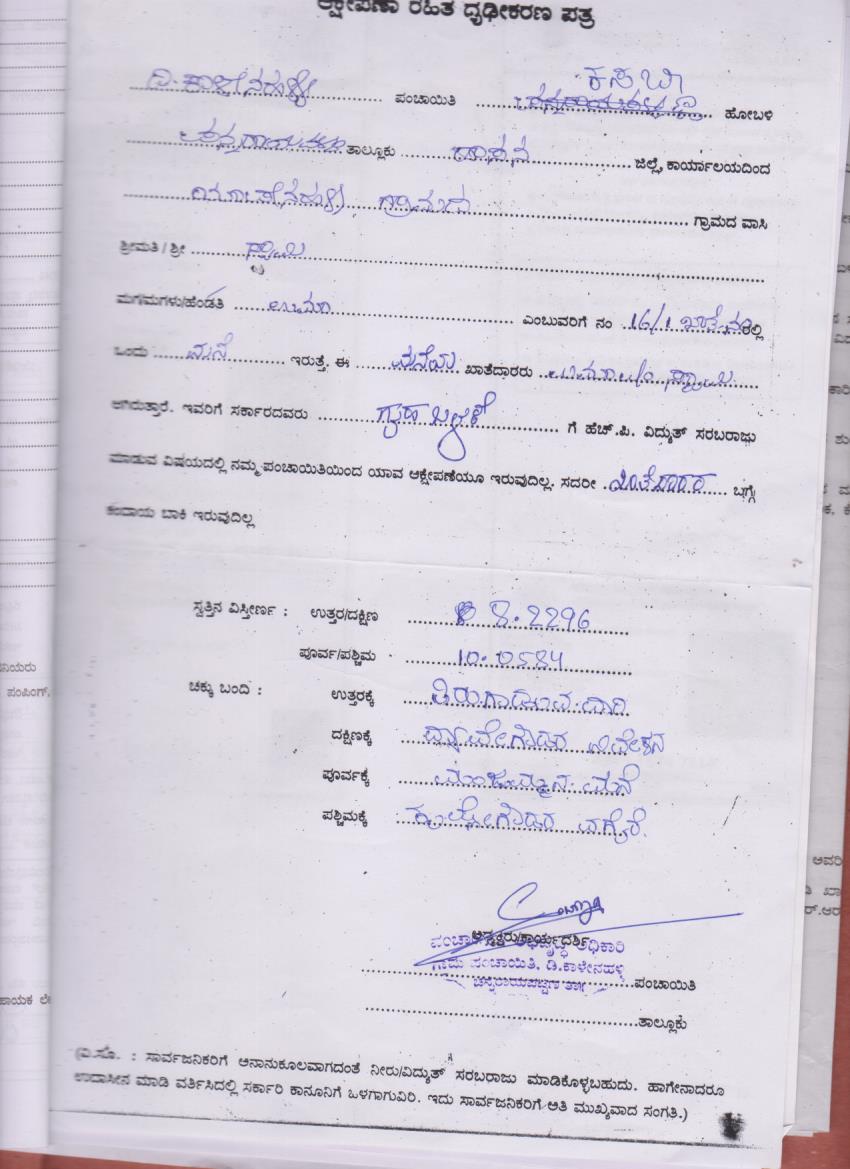 ಆಕ್ಷೇಪಣಾ ರಹಿತ ದೃಢೀಕರಣ ಪತ್ರ
ಡಿ.ಕಾಳೇನಹಳ್ಳಿ ಪಂಚಾಯಿತಿ ಕಸಬಾ ಹೋಬಳಿ
ಚನ್ನರಾಯಪಟ್ಟಣ ತಾಲ್ಲೂಕು ಹಾಸನ ಜಿಲ್ಲೆ, ಕಾರ್ಯಾಲಯದಿಂದ
ಗ್ರಾಮದ ಗ್ರಾಮದ ವಾಸಿ
ಶ್ರೀಮತಿ / ಶ್ರೀ
ಮಗ/ಮಗಳು/ಹೆಂಡತಿ ಉಮಾ ಎಂಬುವರಿಗೆ ನಂ 16/1 ರಲ್ಲಿ
ಒಂದು ಮನೆ ಇರುತ್ತೆ. ಈ ಮನೆಯ ಖಾತೆದಾರರು
ಆಗಿರುತ್ತಾರೆ. ಇವರಿಗೆ ಸರ್ಕಾರದವರು ಗೃಹ ಬಳಕೆ ಗೆ ಹೆಚ್.ಪಿ. ವಿದ್ಯುತ್ ಸರಬರಾಜು
ಮಾಡುವ ವಿಷಯದಲ್ಲಿ ನಮ್ಮ ಪಂಚಾಯಿತಿಯಿಂದ ಯಾವ ಆಕ್ಷೇಪಣೆಯೂ ಇರುವುದಿಲ್ಲ. ಸದರೀ ಖಾತೆದಾರರ ಬಗ್ಗೆ
ಕಂದಾಯ ಬಾಕಿ ಇರುವುದಿಲ್ಲ
ಸ್ವತ್ತಿನ ವಿಸ್ತೀರ್ಣ : ಉತ್ತರ/ದಕ್ಷಿಣ 8.2296
ಪೂರ್ವ/ಪಶ್ಚಿಮ 10.0584
ಚಕ್ಕು ಬಂದಿ : ಉತ್ತರಕ್ಕೆ ತಿರುಗಾಡುವ ದಾರಿ
ದಕ್ಷಿಣಕ್ಕೆ ದ್ಯಾವೇಗೌಡರ ನಿವೇಶನ
ಪೂರ್ವಕ್ಕೆ ಮಂಜಮ್ಮನ ಮನೆ
ಪಶ್ಚಿಮಕ್ಕೆ
ಅಧ್ಯಕ್ಷರು/ಕಾರ್ಯದರ್ಶಿ
ಪಂಚಾಯಿತಿ ಅಭಿವೃದ್ಧಿ ಅಧಿಕಾರಿ
ಗ್ರಾಮ ಪಂಚಾಯಿತಿ, ಡಿ.ಕಾಳೇನಹಳ್ಳಿ ಪಂಚಾಯಿತಿ
ಚನ್ನರಾಯಪಟ್ಟಣ ತಾ||
ತಾಲ್ಲೂಕು
(ವಿ.ಸೂ. : ಸಾರ್ವಜನಿಕರಿಗೆ ಅನಾನುಕೂಲವಾಗದಂತೆ ನೀರು/ವಿದ್ಯುತ್ ಸರಬರಾಜು ಮಾಡಿಕೊಳ್ಳಬಹುದು. ಹಾಗೇನಾದರೂ
ಉದಾಸೀನ ಮಾಡಿ ವರ್ತಿಸಿದಲ್ಲಿ ಸರ್ಕಾರಿ ಕಾನೂನಿಗೆ ಒಳಗಾಗುವಿರಿ. ಇದು ಸಾರ್ವಜನಿಕರಿಗೆ ಅತಿ ಮುಖ್ಯವಾದ ಸಂಗತಿ.)